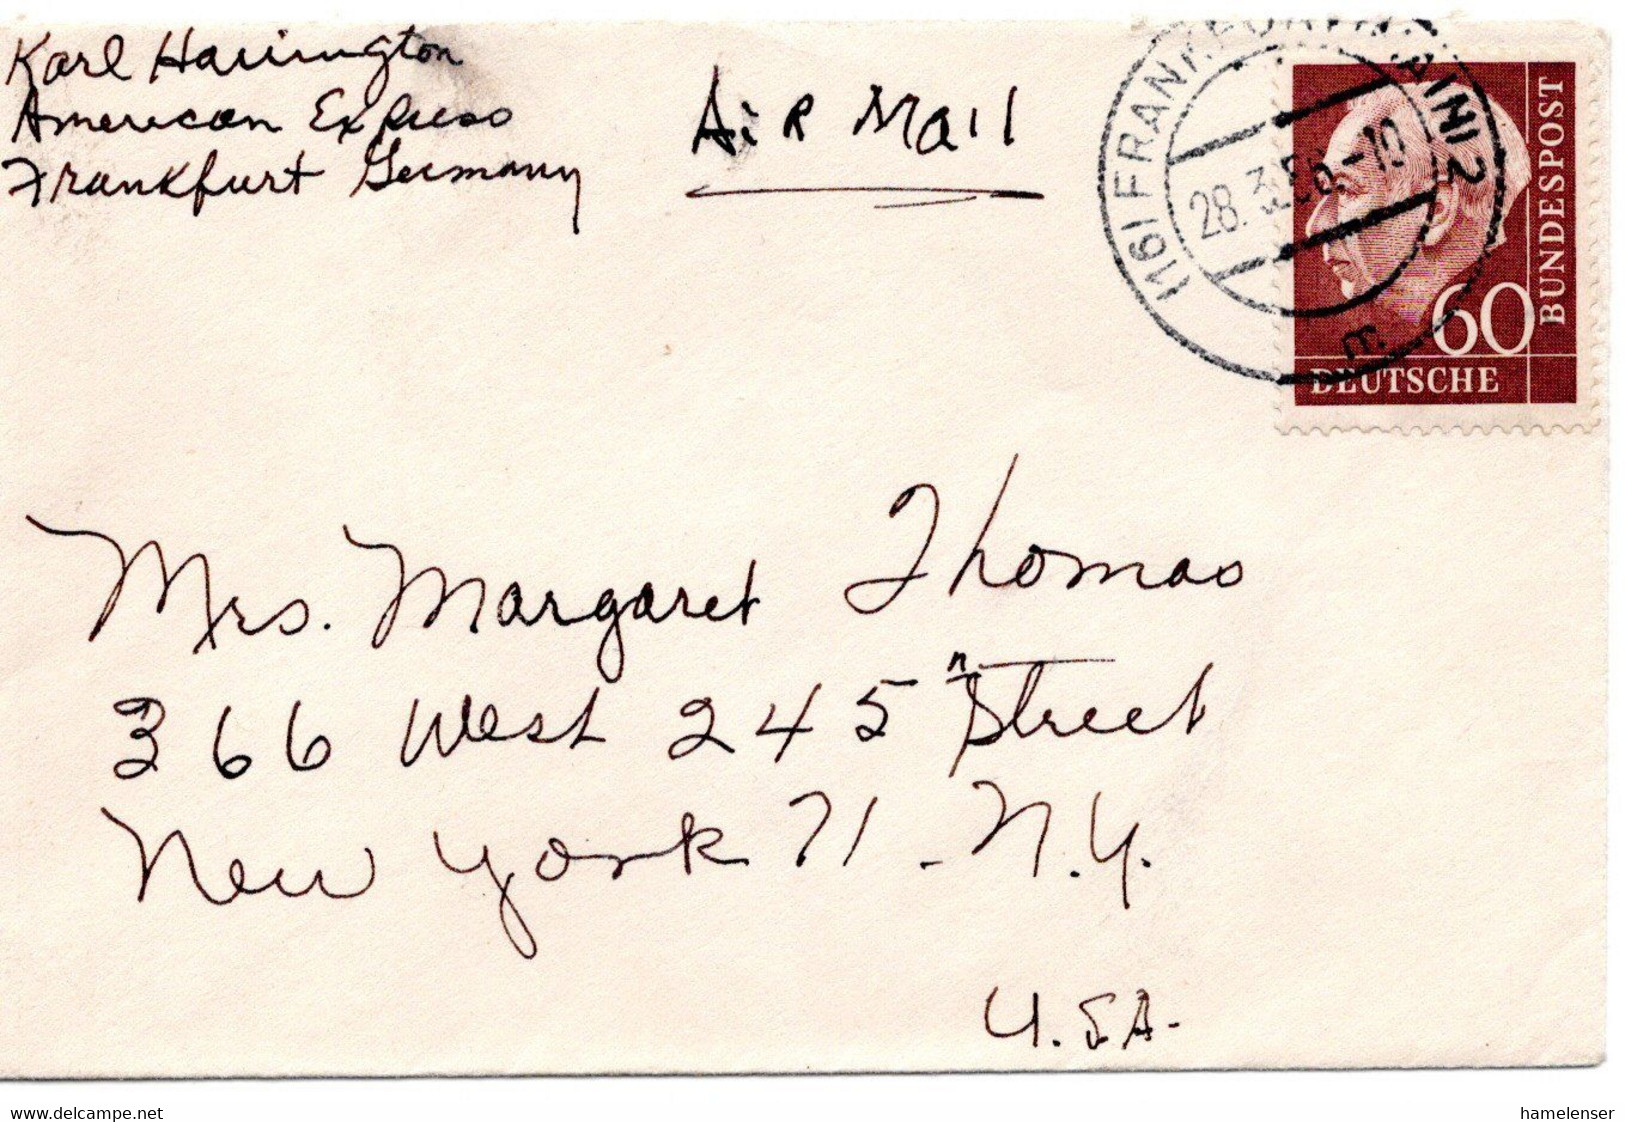 Karl Harrington
American Express
Frankfurt Germany
Air Mail
(16) FRANKFURT (MAIN) 2
28. 3. 58. -10
m
60
DEUTSCHE
BUNDESPOST
Mrs. Margaret Thomas
366 West 245 Street
New York 71. N.Y.
U.S.A.
www.delcampe.net
hamelenser